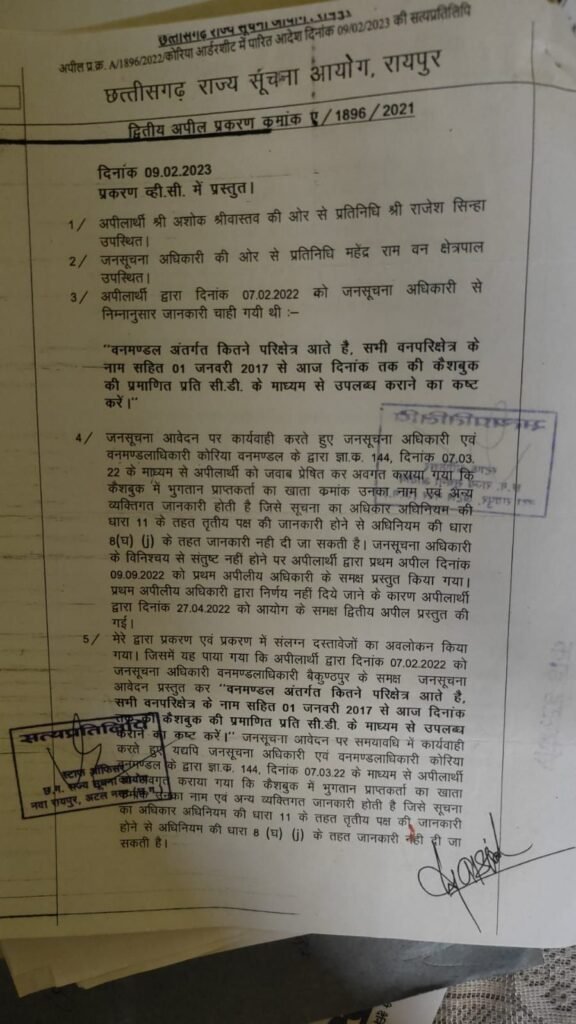 छत्तीसगढ़ राज्य सूचना आयोग, रायपुर
अपील प्र.क्र. A/1896/2022/कोरिया आर्डरशीट में पारित आदेश दिनांक 09/02/2023 की सत्यप्रतिलिपि
छत्तीसगढ़ राज्य सूंचना आयोग, रायपुर
द्वितीय अपील प्रकरण कमांक ए/1896/2021
दिनांक 09.02.2023
प्रकरण व्ही.सी. में प्रस्तुत।
1/ अपीलार्थी श्री अशोक श्रीवास्तव की ओर से प्रतिनिधि श्री राजेश सिन्हा
उपस्थित।
2/ जनसूचना अधिकारी की ओर से प्रतिनिधि महेंद्र राम वन क्षेत्रपाल
उपस्थित।
3/ अपीलार्थी द्वारा दिनांक 07.02.2022 को जनसूचना अधिकारी से
निम्नानुसार जानकारी चाही गयी थी :–
"वनमण्डल अंतर्गत कितने परिक्षेत्र आते है, सभी वनपरिक्षेत्र के
नाम सहित 01 जनवरी 2017 से आज दिनांक तक की कैशबुक
की प्रमाणित प्रति सी.डी. के माध्यम से उपलब्ध कराने का कष्ट
करें।"
4/ जनसूचना आवेदन पर कार्यवाही करते हुए जनसूचना अधिकारी एवं
वनमण्डलाधिकारी कोरिया वनमण्डल के द्वारा ज्ञा.क. 144, दिनांक 07.03.
22 के माध्यम से अपीलार्थी को जवाब प्रेषित कर अवगत कराया गया कि
कैशबुक में भुगतान प्राप्तकर्ता का खाता कमांक उनका नाम एवं अन्य
व्यक्तिगत जानकारी होती है जिसे सूचना का अधिकार अधिनियम की
धारा 11 के तहत तृतीय पक्ष की जानकारी होने से अधिनियम की धारा
8(घ) (j) के तहत जानकारी नही दी जा सकती है। जनसूचना अधिकारी
के विनिश्चय से संतुष्ट नहीं होने पर अपीलार्थी द्वारा प्रथम अपील दिनांक
09.09.2022 को प्रथम अपीलीय अधिकारी के समक्ष प्रस्तुत किया गया।
प्रथम अपीलीय अधिकारी द्वारा निर्णय नहीं दिये जाने के कारण अपीलार्थी
द्वारा दिनांक 27.04.2022 को आयोग के समक्ष द्वितीय अपील प्रस्तुत की
गई।
5/ मेरे द्वारा प्रकरण एवं प्रकरण में संलग्न दस्तावेजों का अवलोकन किया
गया। जिसमें यह पाया गया कि अपीलार्थी द्वारा दिनांक 07.02.2022 को
जनसूचना अधिकारी वनमण्डलाधिकारी बैकुण्ठपुर के समक्ष जनसूचना
आवेदन प्रस्तुत कर "वनमण्डल अंतर्गत कितने परिक्षेत्र आते है,
सभी वनपरिक्षेत्र के नाम सहित 01 जनवरी 2017 से आज दिनांक
तक की कैशबुक की प्रमाणित प्रति सी.डी. के माध्यम से उपलब्ध
कराने का कष्ट करें।" जनसूचना आवेदन पर समयावधि में कार्यवाही
करते हुए यद्यपि जनसूचना अधिकारी एवं वनमण्डलाधिकारी कोरिया
वनमण्डल के द्वारा ज्ञा.क. 144, दिनांक 07.03.22 के माध्यम से अपीलार्थी
को अवगत कराया गया कि कैशबुक में भुगतान प्राप्तकर्ता का खाता
कमांक उनका नाम एवं अन्य व्यक्तिगत जानकारी होती है जिसे सूचना
का अधिकार अधिनियम की धारा 11 के तहत तृतीय पक्ष की जानकारी
होने से अधिनियम की धारा 8 (घ) (j) के तहत जानकारी नही दी जा
सकती है।
सत्यप्रतिलिपि
स्टाफ ऑफिसर
छ.ग. राज्य सूचना आयोग
नवा रायपुर, अटल नगर (छ.ग.)